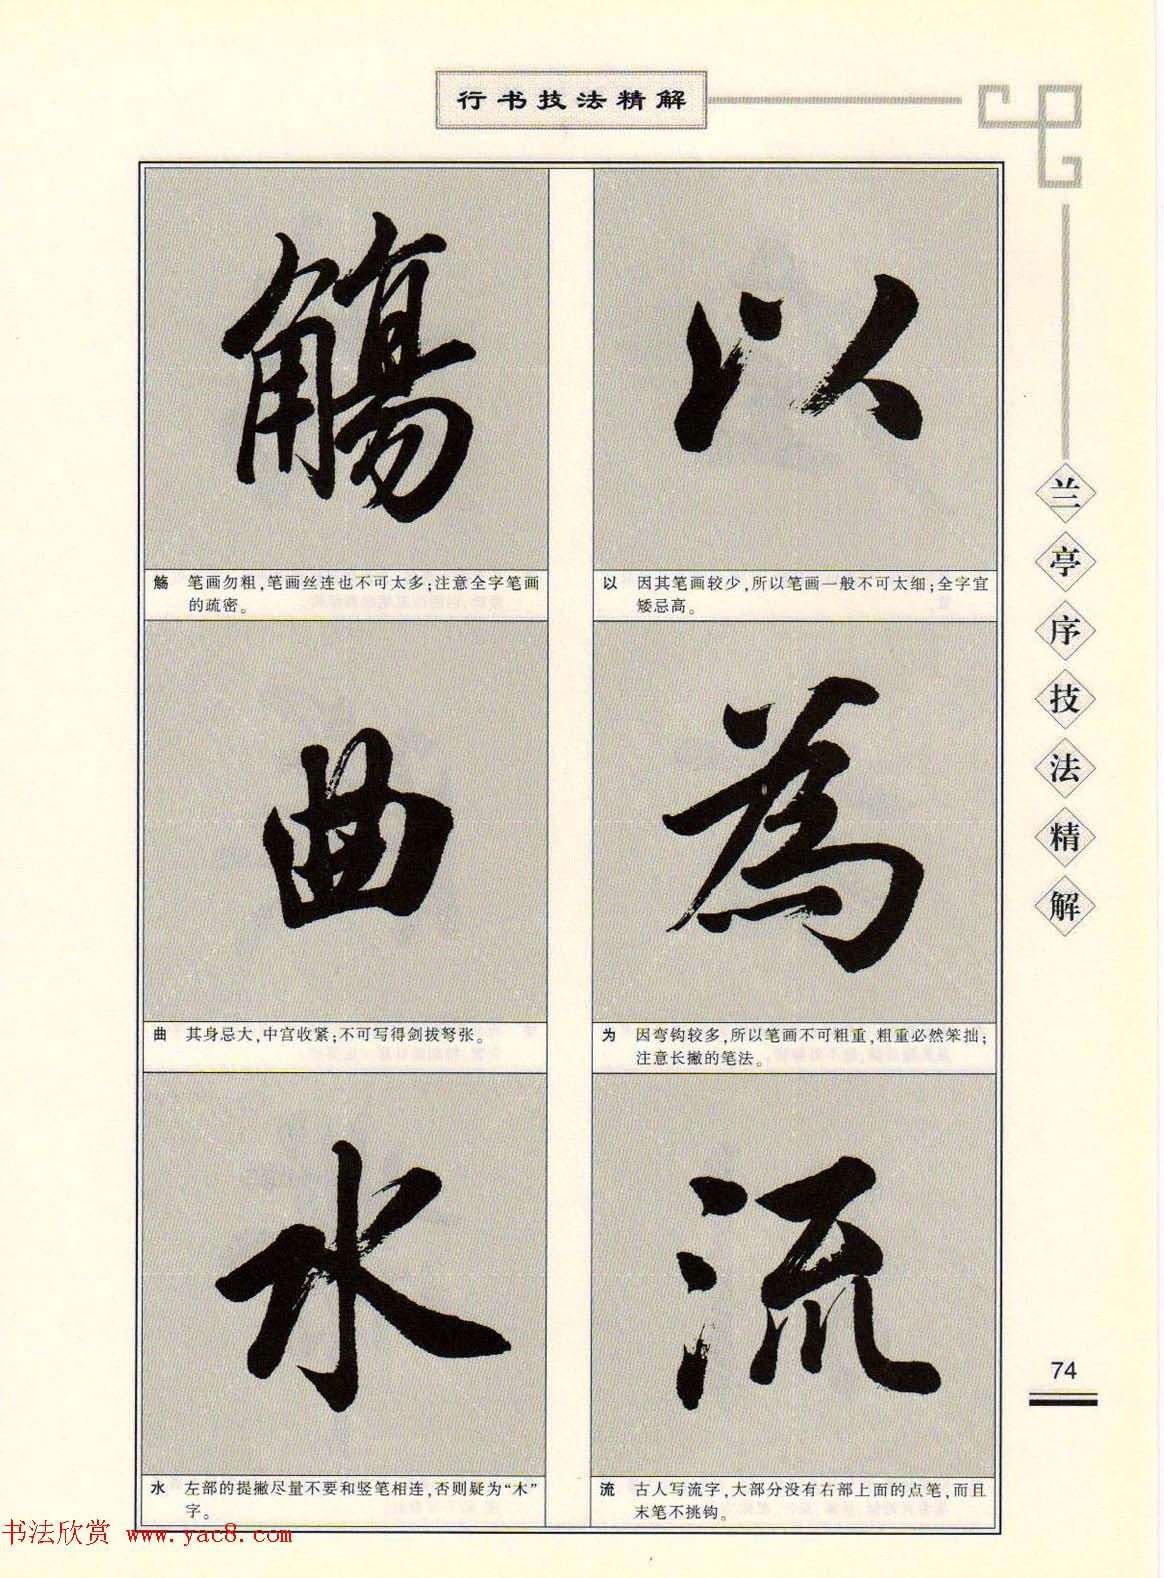 行书技法精解
以
以 因其笔画较少,所以笔画一般不可太细;全字宜
矮忌高。
為
为 因弯钩较多,所以笔画不可粗重,粗重必然笨拙;
注意长撇的笔法。
流
流 古人写流字,大部分没有右部上面的点笔,而且
末笔不挑钩。
觴
觞 笔画勿粗,笔画丝连也不可太多;注意全字笔画
的疏密。
曲
曲 其身忌大,中宫收紧;不可写得剑拔弩张。
水
水 左部的提撇尽量不要和竖笔相连,否则疑为“木”
字。
兰亭序技法精解
74
书法欣赏 www.yac8.com